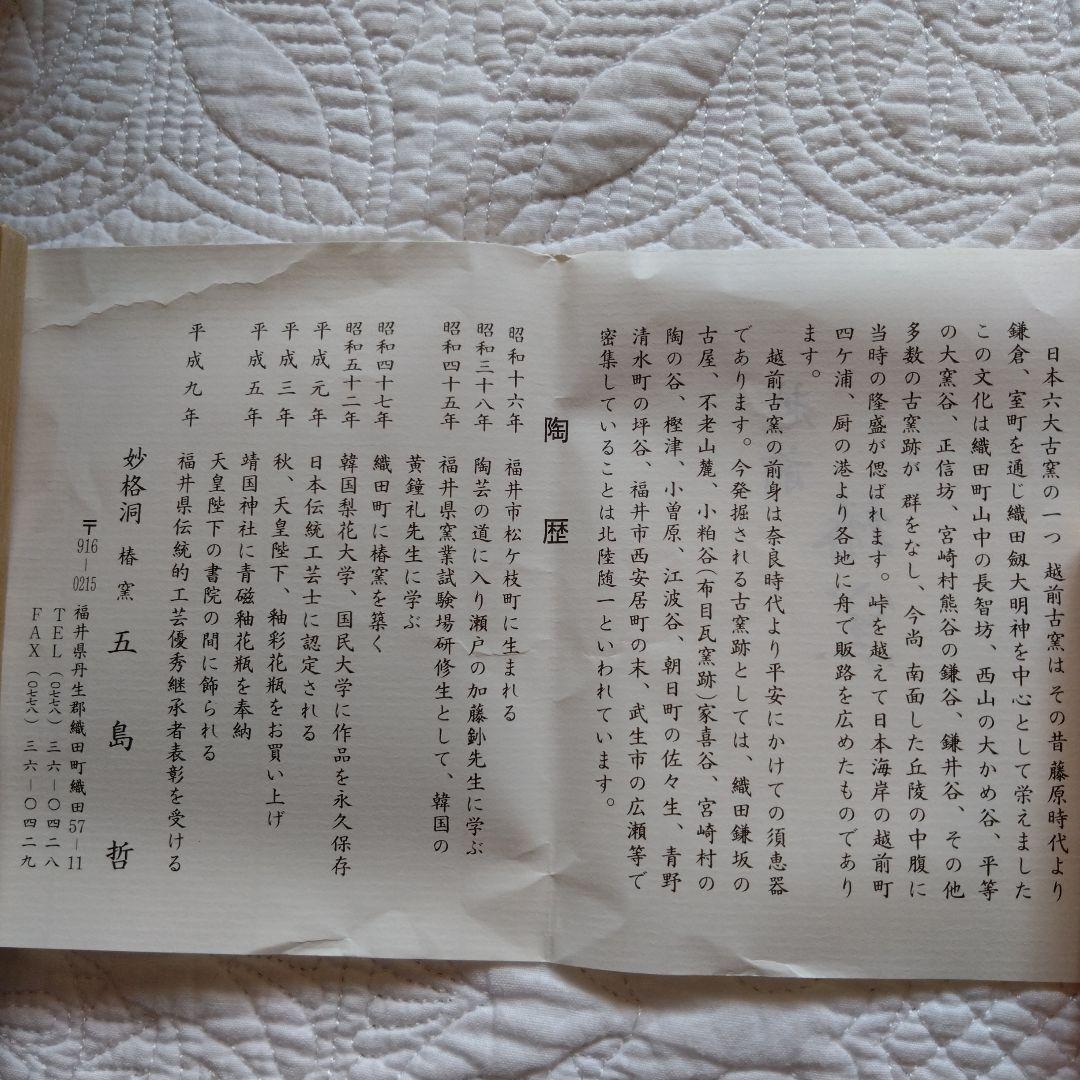 日本六大古窯の一つ 越前古窯は その昔 藤原時代より
鎌倉、室町を通じ織田劔大明神を中心として栄えました
この文化は織田町山中の長智坊、西山の大かめ谷、平等
の大窯谷、正信坊、宮崎村熊谷の鎌谷、鎌井谷、その他
多数の古窯跡が 群をなし、今尚 南面した丘陵の中腹に
当時の隆盛が偲ばれます。峠を越えて日本海岸の越前町
四ケ浦、厨の港より各地に舟で販路を広めたものであり
ます。
越前古窯の前身は奈良時代より平安にかけての須恵器
であります。今発掘される古窯跡としては、織田鎌坂の
古屋、不老山麓、小粕谷（布目瓦窯跡）家喜谷、宮崎村の
陶の谷、樫津、小曽原、江波谷、朝日町の佐々生、青野
清水町の坪谷、福井市西安居町の末、武生市の広瀬等で
密集していることは北陸随一といわれています。
陶歴
昭和十六年 福井市松ケ枝町に生まれる
昭和三十八年 陶芸の道に入り瀬戸の加藤釥先生に学ぶ
昭和四十五年 福井県窯業試験場研修生として、韓国の
黄鐘礼先生に学ぶ
昭和四十七年 織田町に椿窯を築く
昭和五十二年 韓国梨花大学、国民大学に作品を永久保存
平成元年 日本伝統工芸士に認定される
平成三年 秋、天皇陛下、釉彩花瓶をお買い上げ
平成五年 靖国神社に青磁釉花瓶を奉納
天皇陛下の書院の間に飾られる
平成九年 福井県伝統的工芸優秀継承者表彰を受ける
妙格洞 椿窯 五島哲
〒916-0215 福井県丹生郡織田町織田57-11
TEL（〇七七八）三六-〇四二八
FAX（〇七七八）三六-〇四二九